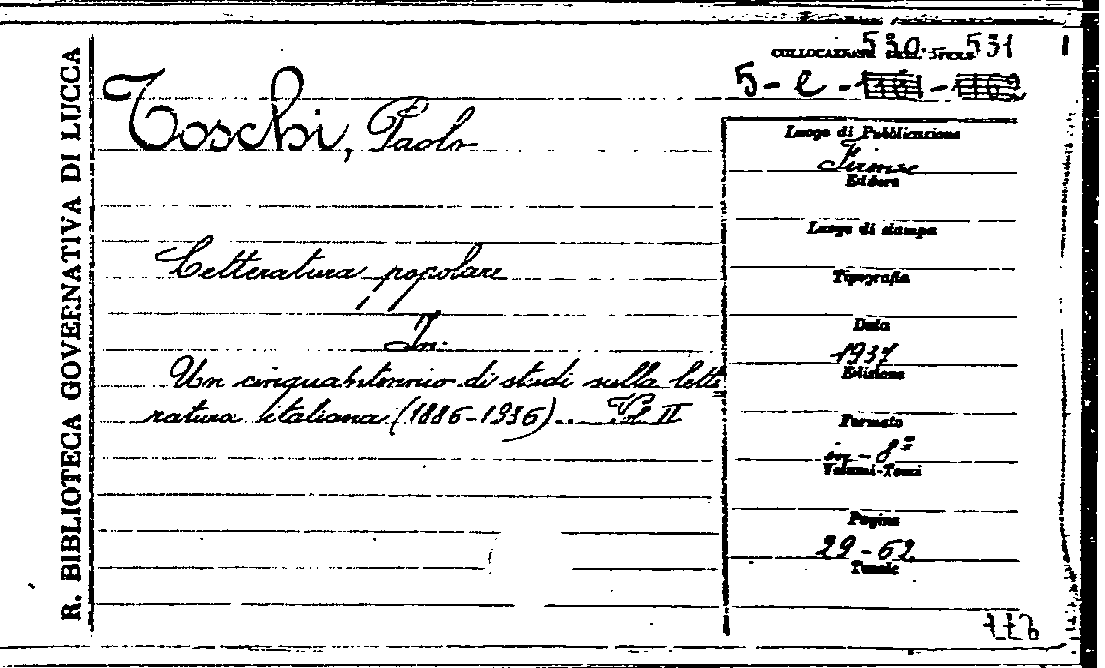 R. BIBLIOTECA GOVERNATIVA DI LUCCA
530 - 531
5 - e -
Toschi, Paolo
Letteratura popolare
In:
Un cinquantennio di studi sulla lette
ratura italiana (1886-1936)... Vol II
Luogo di Pubblicazione
Firenze
Editore
Luogo di stampa
Tipografia
Data
1937
Edizione
Formato
in - 8º
Volumi-Tomi
Pagine
29 - 62
Tavole